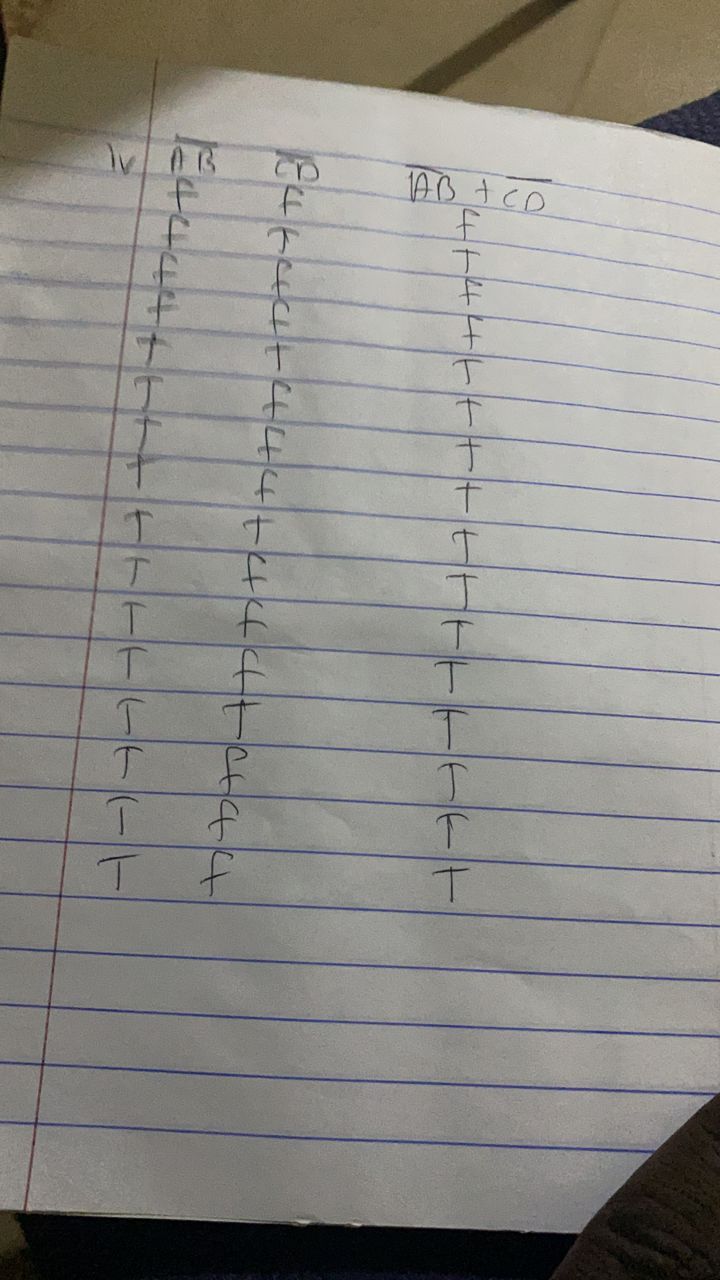 iv) A̅B̅ C̅D̅ A̅B̅ + C̅D̅
f f f
f T T
f f f
f f f
T T T
T f T
T f T
T f T
T T T
T f T
T f T
T f T
T T T
T f T
T f T
T f T